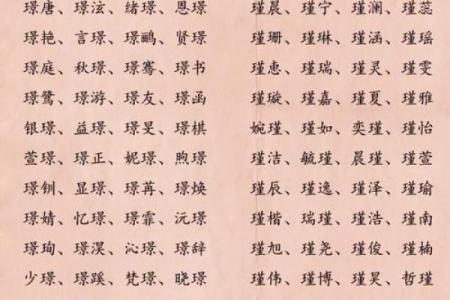 璟唐、璟泫、绪璟、恩璟
璟艳、言璟、璟鹂、贤璟
璟庭、秋璟、璟骞、璟书
璟鹭、璟游、璟友、璟函
银璟、益璟、璟旻、璟棋
萱璟、璟正、妮璟、煦璟
璟钏、显璟、璟苒、璟焕
璟婧、忆璟、璟霏、沅璟
璟珣、璟淏、沁璟、璟辞
少璟、璟蹊、梵璟、晓璟
瑾晨、瑾宁、瑾澜、瑾蕊
瑾珊、瑾琳、瑾涵、瑾瑶
瑾惠、瑾瑞、瑾灵、瑾雯
瑾璇、瑾嘉、瑾夏、瑾雅
婉瑾、瑾如、奕瑾、瑾怡
瑾洁、毓瑾、晨瑾、瑾萱
瑾辰、瑾逸、瑾泽、瑾瑜
瑾楷、瑞瑾、瑾浩、瑾南
瑾旭、瑾尧、瑾俊、瑾楠
瑾伟、瑾博、瑾昊、哲瑾